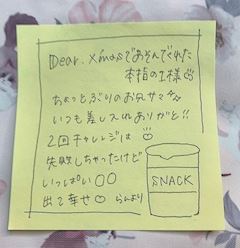 Dear. X'masであそんでくれた
本指のI様
ちょっとぶりのお兄サマ
いつも差し入れありがと!!
2回チャレンジは
失敗しちゃったけど
いっぱい○○
出て幸せ らんより
SNACK